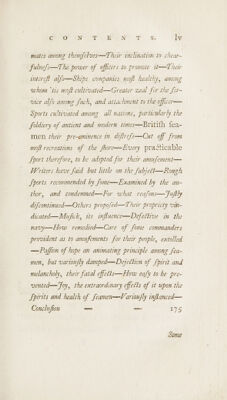 CONTENTS. lv
mates among themſelves—Their inclination to chear-
fulneſs—The power of officers to promote it—Their
intereſt alſo—Ships companies moſt healthy, among
whom 'tis moſt cultivated—Greater zeal for the ſer-
vice alſo among ſuch, and attachment to the officer—
Sports cultivated among all nations, particularly the
ſoldiery of antient and modern times—Britiſh ſea-
men their pre-eminence in diſtreſs—Cut off from
moſt recreations of the ſhore—Every practicable
ſport therefore, to be adopted for their amuſement—
Writers have ſaid but little on the ſubject—Rough
ſports recommended by ſome—Examined by the au-
thor, and condemned—For what reaſons—Juſtly
diſcontinued—Others propoſed—Their propriety vin-
dicated—Muſick, its influence—Defective in the
navy—How remedied—Care of ſome commanders
provident as to amuſements for their people, extolled
—Paſſion of hope an animating principle among ſea-
men, but variouſly damped—Dejection of ſpirit and
melancholy, their fatal effects—How eaſy to be pre-
vented—Joy, the extraordinary effects of it upon the
ſpirits and health of ſeamen—Variouſly inſtanced—
Concluſion — — 175
Some